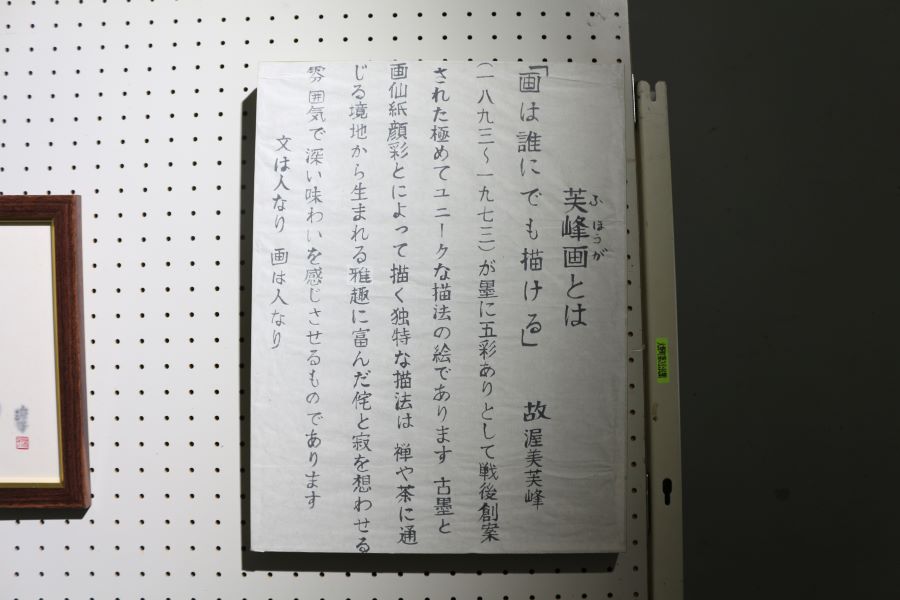 芙峰画とは
ふほうが
「画は誰にでも描ける」 故 渥美芙峰
(一八九三～一九七三)が墨に五彩ありとして戦後創案
された極めてユニークな描法の絵であります 古墨と
画仙紙顔彩とによって描く独特な描法は 禅や茶に通
じる境地から生まれる雅趣に富んだ侘と寂を想わせる
雰囲気で深い味わいを感じさせるものであります
文は人なり 画は人なり